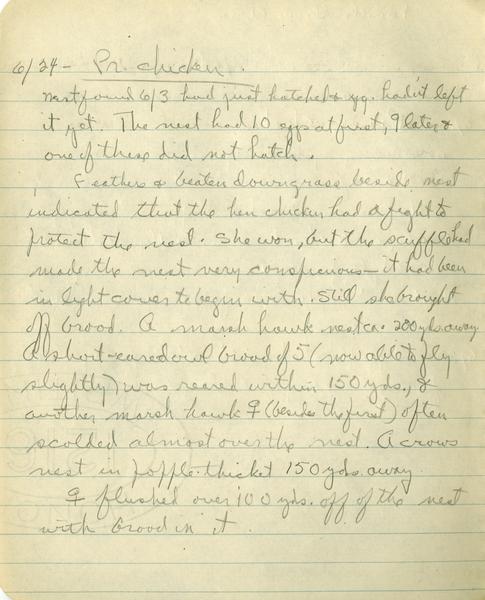 6/24 - Pr. chicken.
Nest found 6/3 had just hatched & yg. hadn't left
it yet. The nest had 10 eggs at first, 9 later &
one of these did not hatch.
Feathers & beaten down grass beside nest
indicated that the hen chicken had a fight to
protect the nest. She won, but the scuffle had
made the nest very conspicuous - it had been
in light cover to begin with. Still she brought
off brood. A marsh hawk nest ca. 200 yds. away
A short-eared owl brood of 5 (now able to fly
slightly) was reared within 150 yds., &
another marsh hawk ♀ (besides the first) often
scolded almost over the nest. A crows
nest in popple thicket 150 yds. away.
♀ flushed over 100 yds. off of the nest
with brood in it.